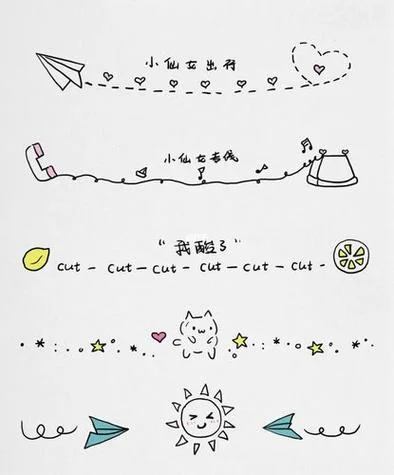 小仙女出行
小仙女专线
“我酸了”
cut - cut - cut - cut - cut - cut -